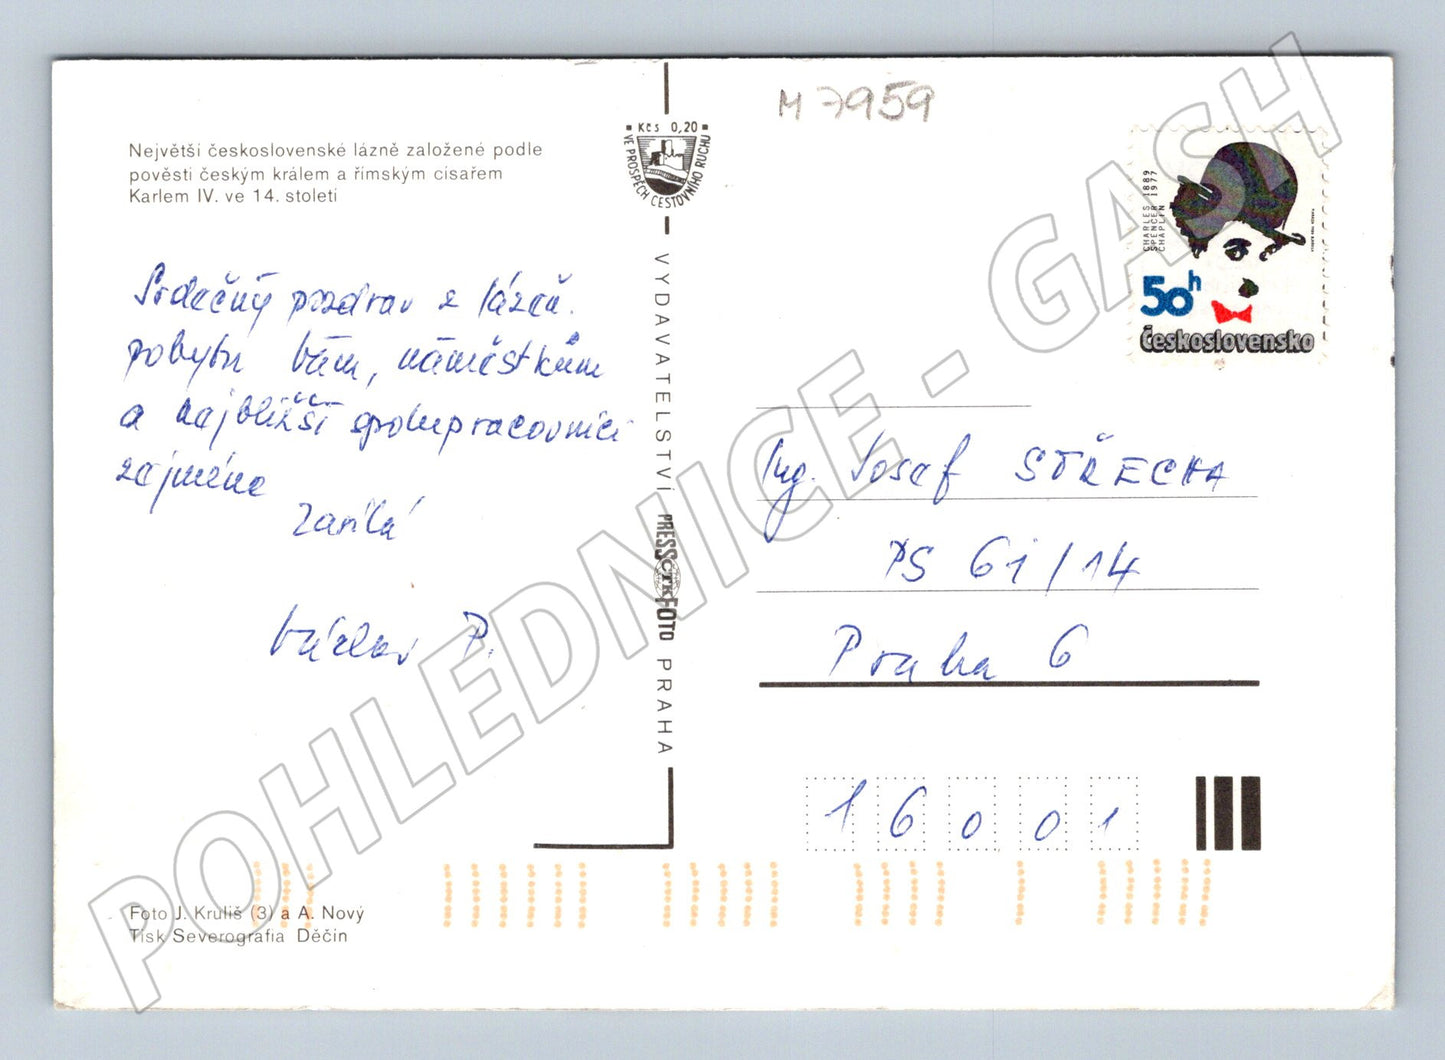 M 7959
Kčs 0,20
VE PROSPĚCH CESTOVNÍHO RUCHU
Největší československé lázně založené podle
pověsti českým králem a římským císařem
Karlem IV. ve 14. století
CHARLES 1889
SPENCER 1977
CHAPLIN
50h
Československo
Srdečný pozdrav z lázeň.
pobytu Vám, náměstkům
a nejbližší spolupracovnici
zejména
zasílá
Václav P.
VYDAVATELSTVÍ PRESSFOTO PRAHA
ČTK
Ing. Josef STŘECHA
PS 61/14
Praha 6
16001
Foto J. Kruliš (3) a A. Nový
Tisk Severografia Děčín
POHLEDNICE - GASH